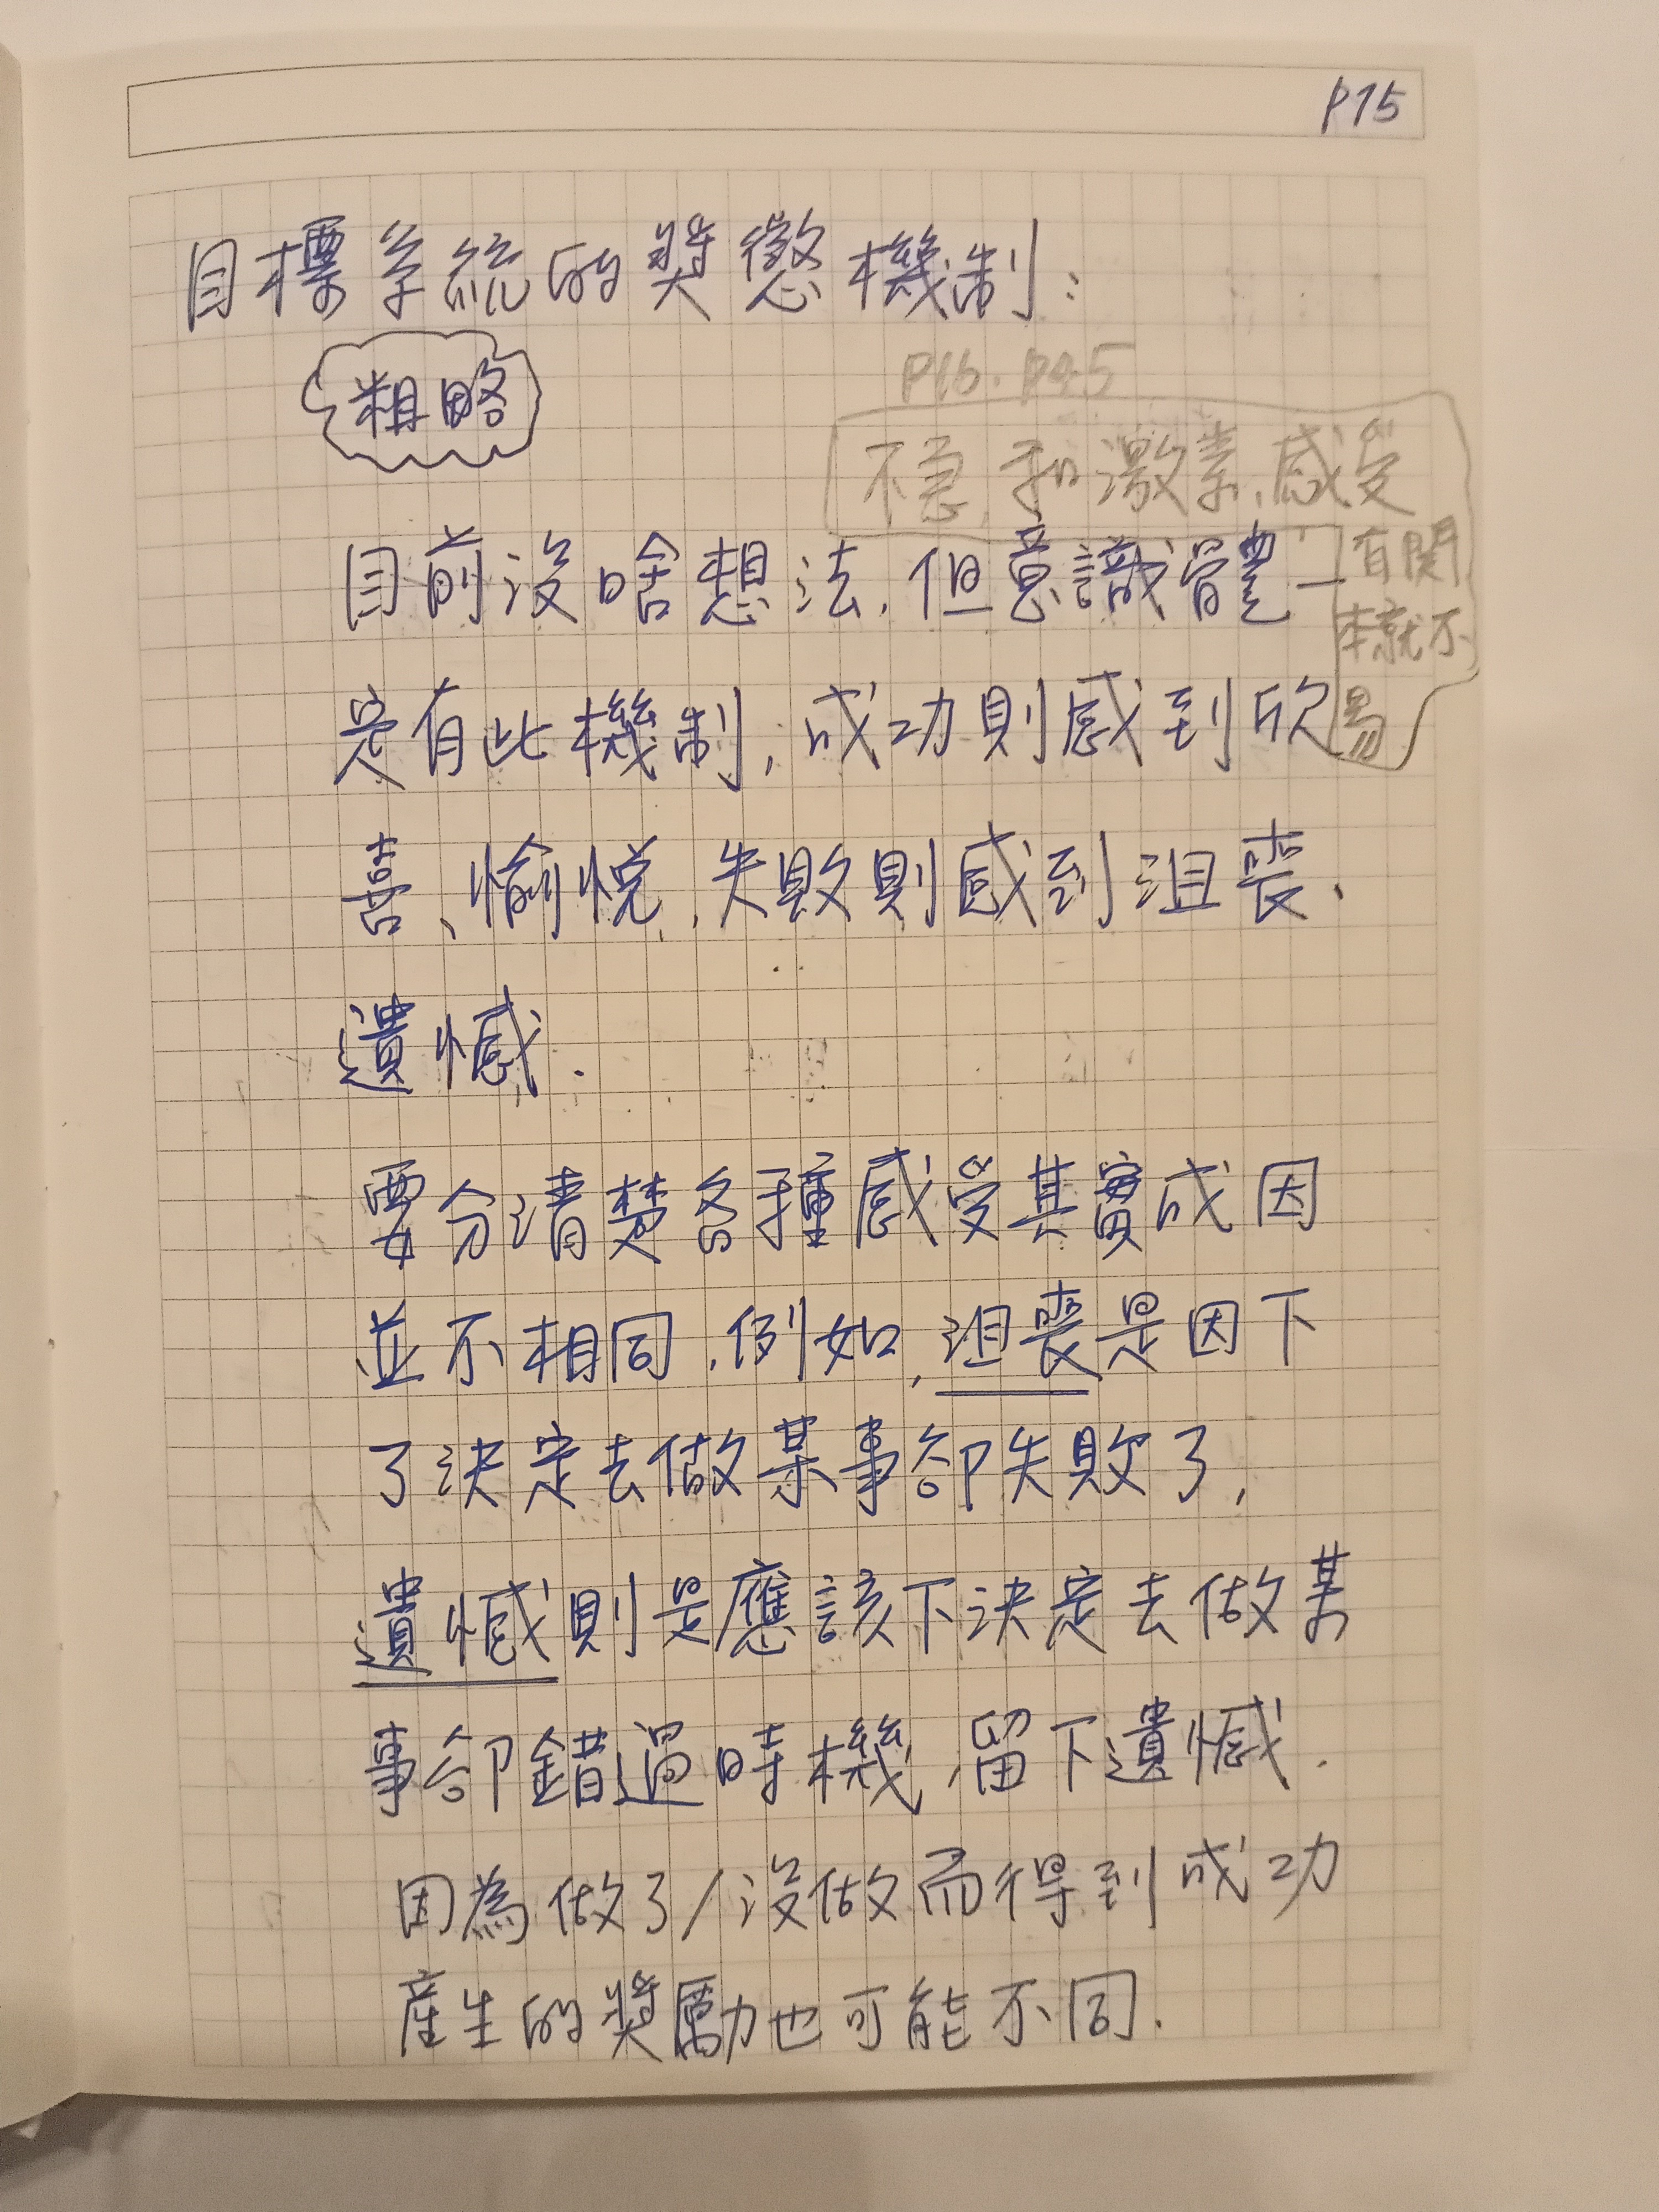 P15
目標系統的獎懲機制:
粗略
P16. P45
不急,和激素,感受
有關
本就不
易
目前沒啥想法,但意識體一
定有此機制,成功則感到欣
喜、愉悅,失敗則感到沮喪、
遺憾.
要分清楚各種感受其實成因
並不相同,例如,沮喪是因下
了決定去做某事卻失敗了,
遺憾則是應該下決定去做某
事卻錯過時機,留下遺憾.
因為做了/沒做而得到成功
產生的獎勵也可能不同.